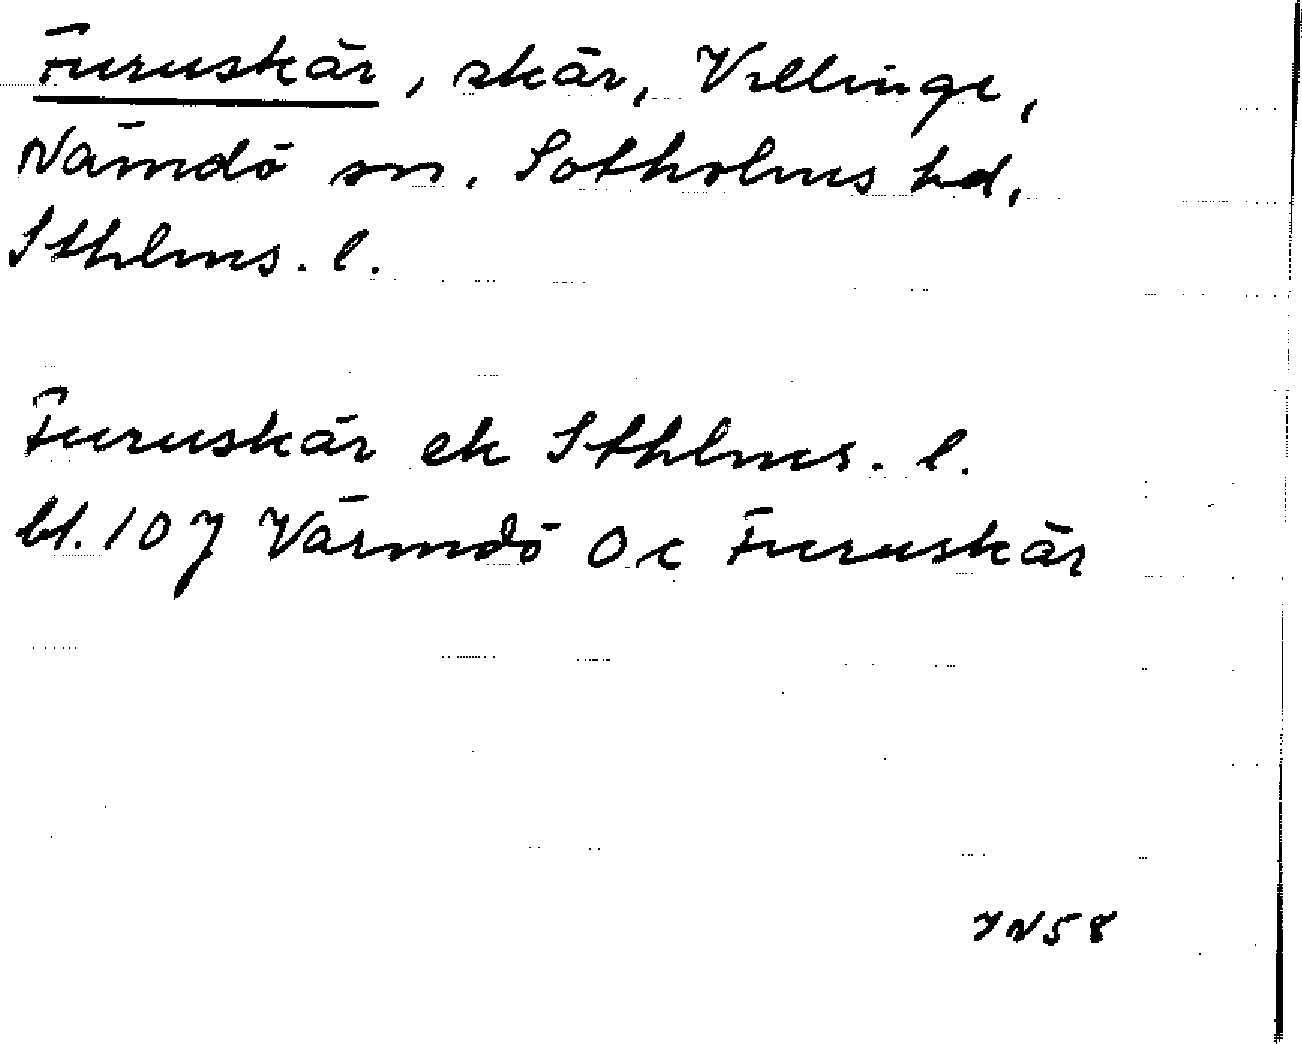 Furuskär, skär, Villinge,
Nämdö sn. Sotholms hd,
Sthlms. l.
Furuskär ek Sthlms. l.
bl. 107 Värmdö Oc Furuskär
YN58